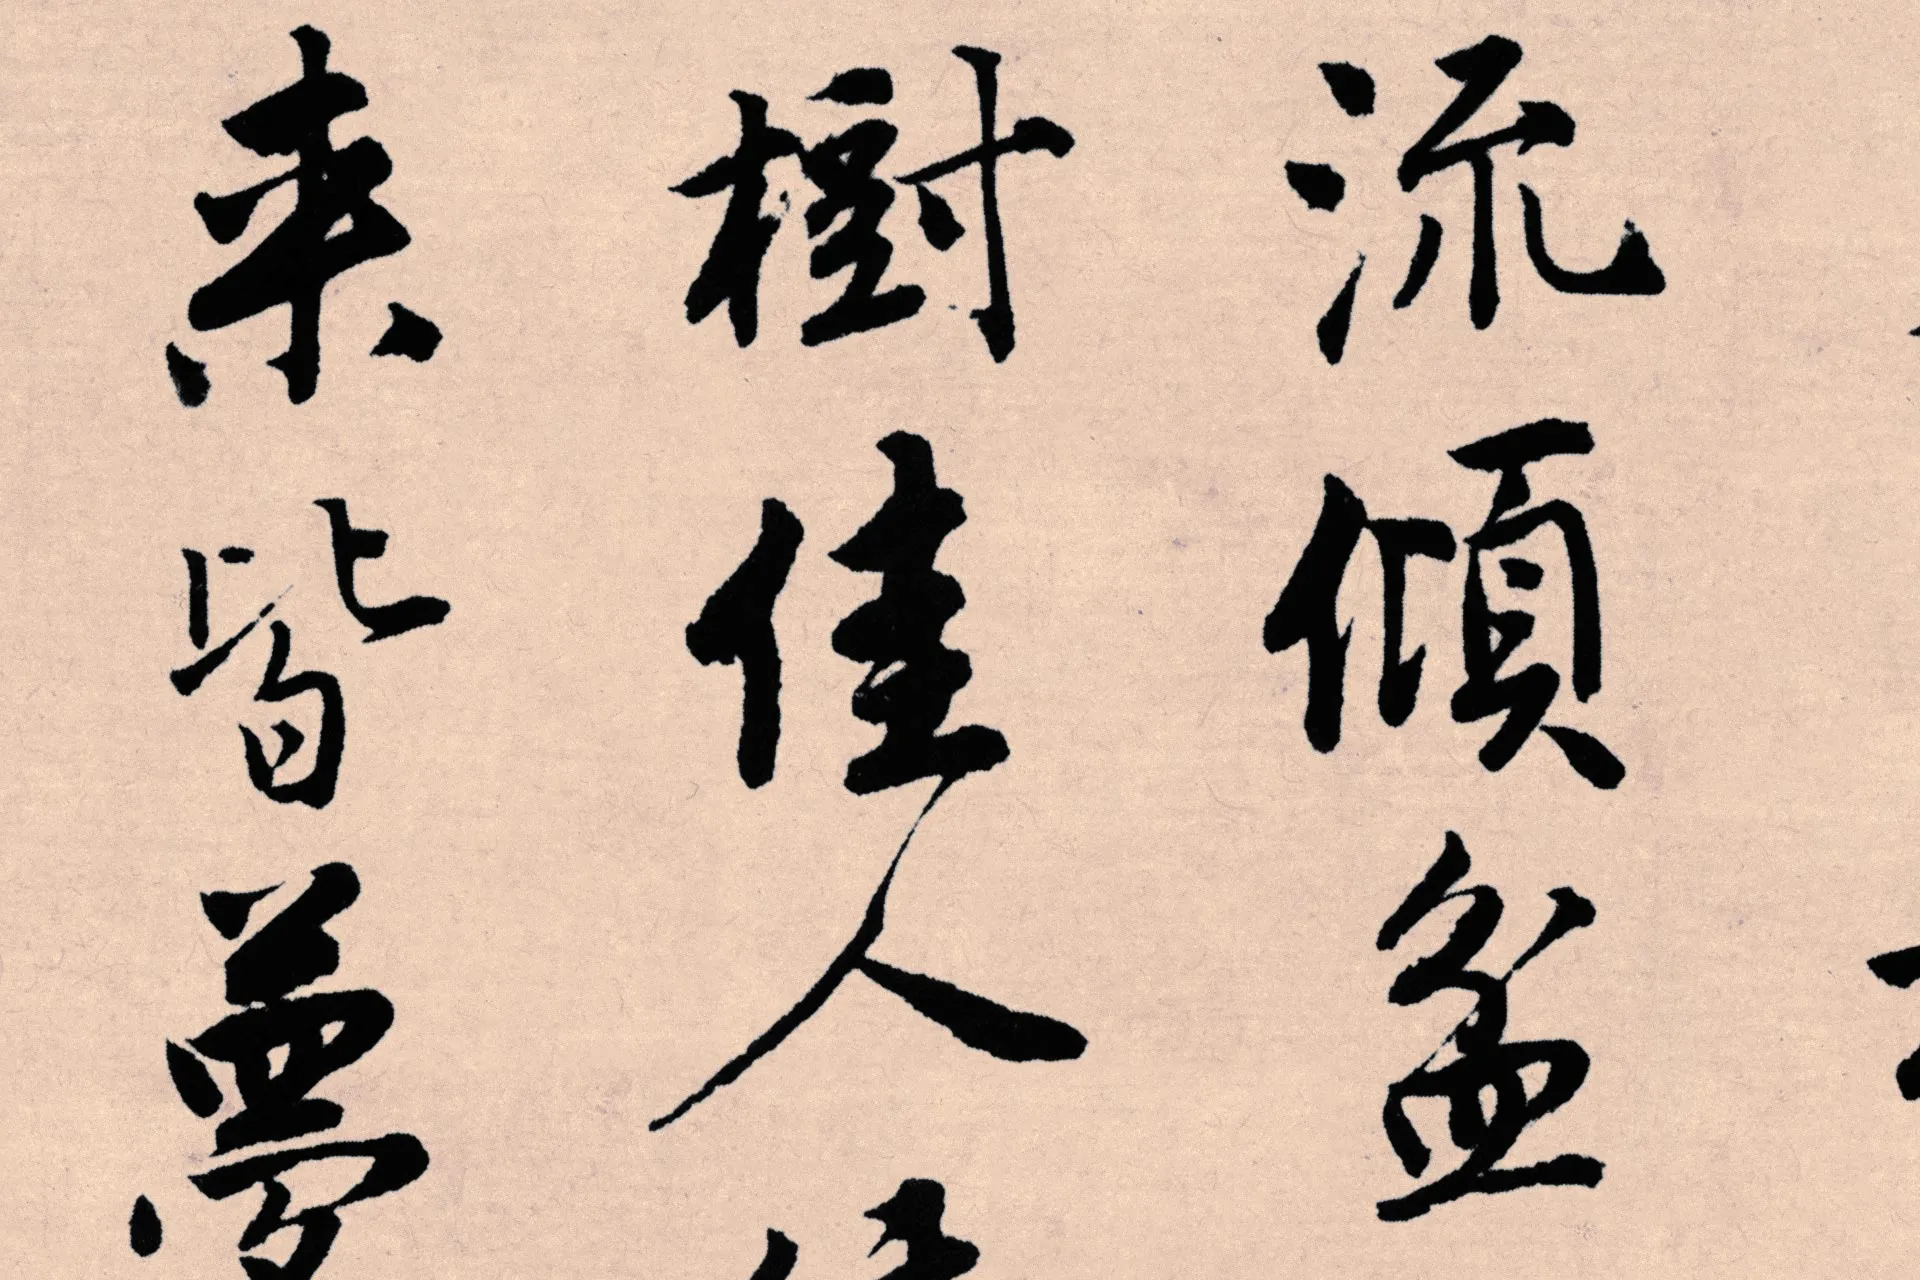 流傾盆
樹佳人
来皆夢